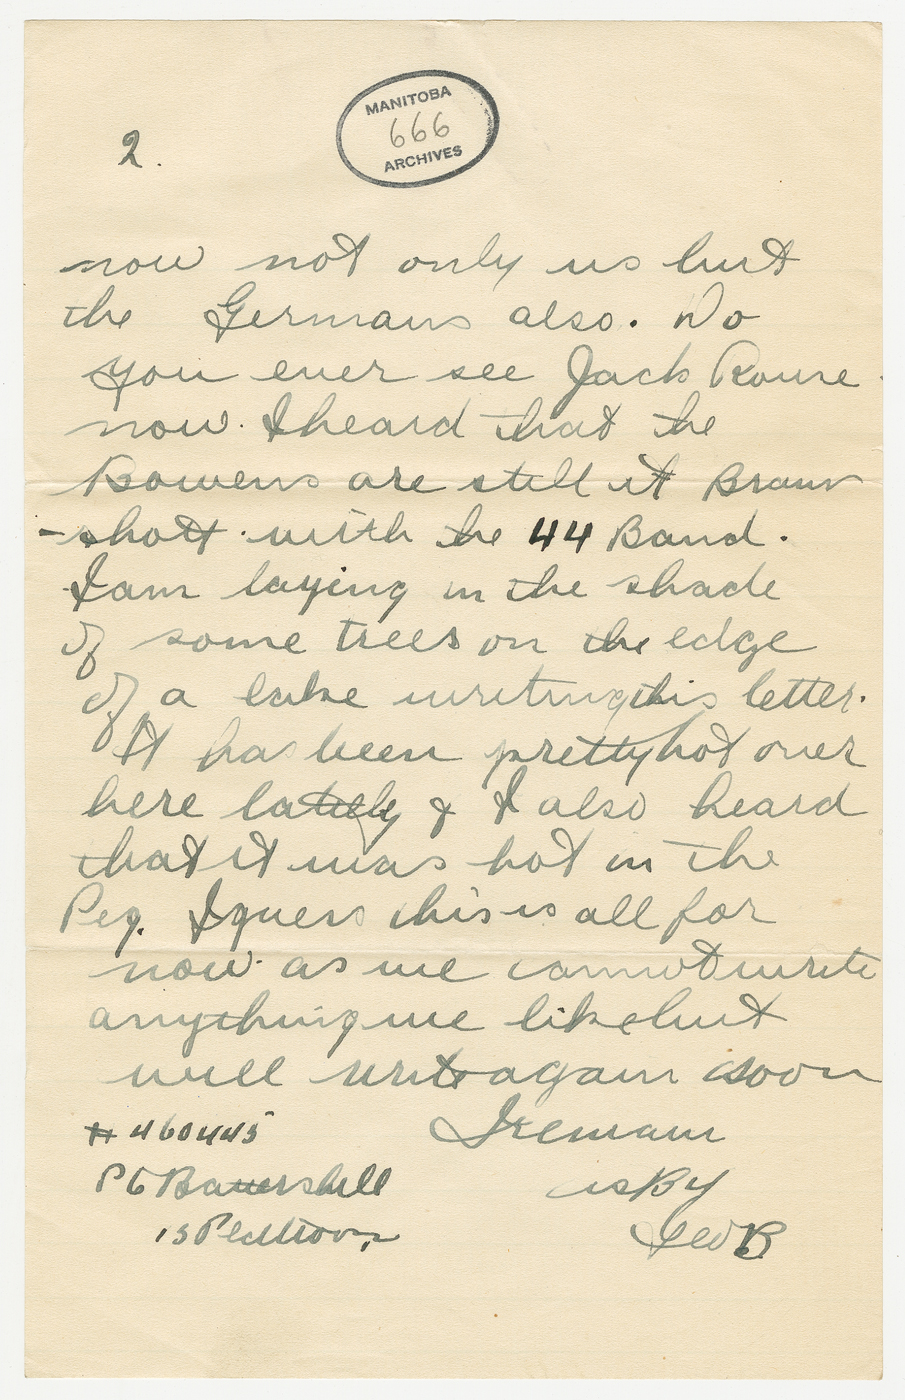 MANITOBA
666
ARCHIVES
2.
now not only us but
the Germans also. Do
you ever see Jack Rouse
now. I heard that the
Bowens are still it Bram
-shott. with the 44 Band.
I am laying in the shade
of some trees on the edge
of a lake writing this letter.
It has been pretty hot over
here lately & I also heard
that it was hot in the
Peg. I guess this is all for
now. as we cannot write
anything we like but
will write again soon
# 460445
I remain
Pt
as
Geo B